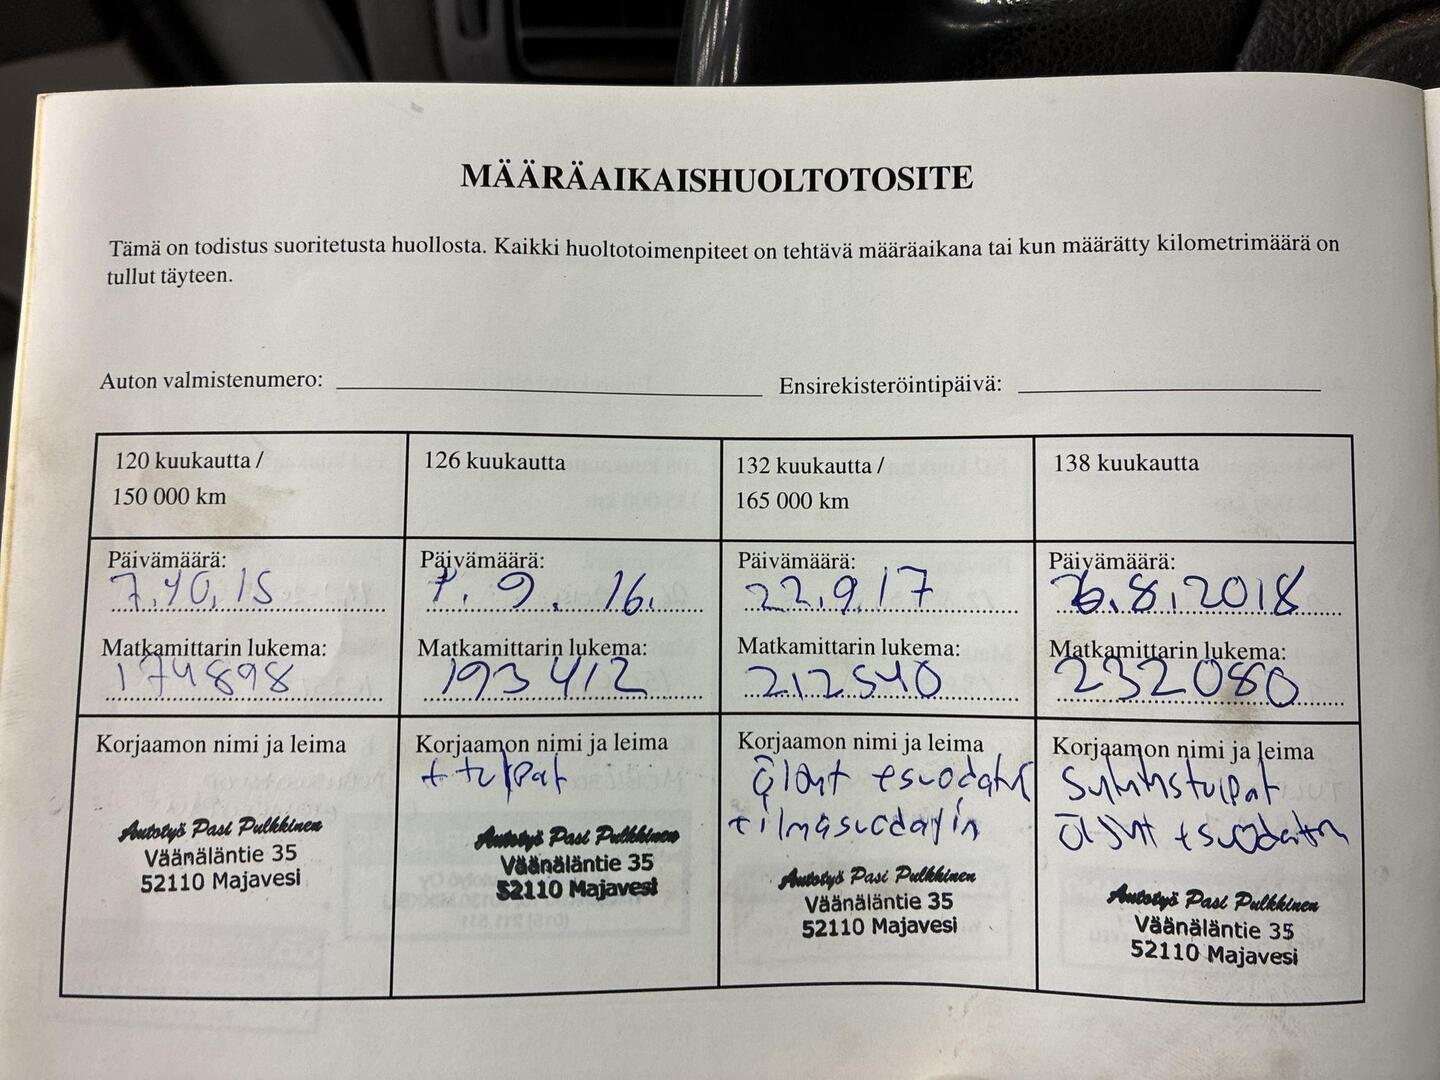 MÄÄRÄAIKAISHUOLTOTOSITE
Tämä on todistus suoritetusta huollosta. Kaikki huoltotoimenpiteet on tehtävä määräaikana tai kun määrätty kilometrimäärä on
tullut täyteen.
Auton valmistenumero:
Ensirekisteröintipäivä:
120 kuukautta /
150 000 km
126 kuukautta
132 kuukautta /
165 000 km
138 kuukautta
Päivämäärä:
7.10.15
Päivämäärä:
7.9.16.
Päivämäärä:
22.9.17
Päivämäärä:
26.8.2018
Matkamittarin lukema:
174898
Matkamittarin lukema:
193412
Matkamittarin lukema:
212540
Matkamittarin lukema:
232080
Korjaamon nimi ja leima
Autotyö Pasi Pulkkinen
Väänäläntie 35
52110 Majavesi
Korjaamon nimi ja leima
+ tulpat
Autotyö Pasi Pulkkinen
Väänäläntie 35
52110 Majavesi
Korjaamon nimi ja leima
+suodatin
+ilmasuodatin
Autotyö Pasi Pulkkinen
Väänäläntie 35
52110 Majavesi
Korjaamon nimi ja leima
+suodatin
Autotyö Pasi Pulkkinen
Väänäläntie 35
52110 Majavesi